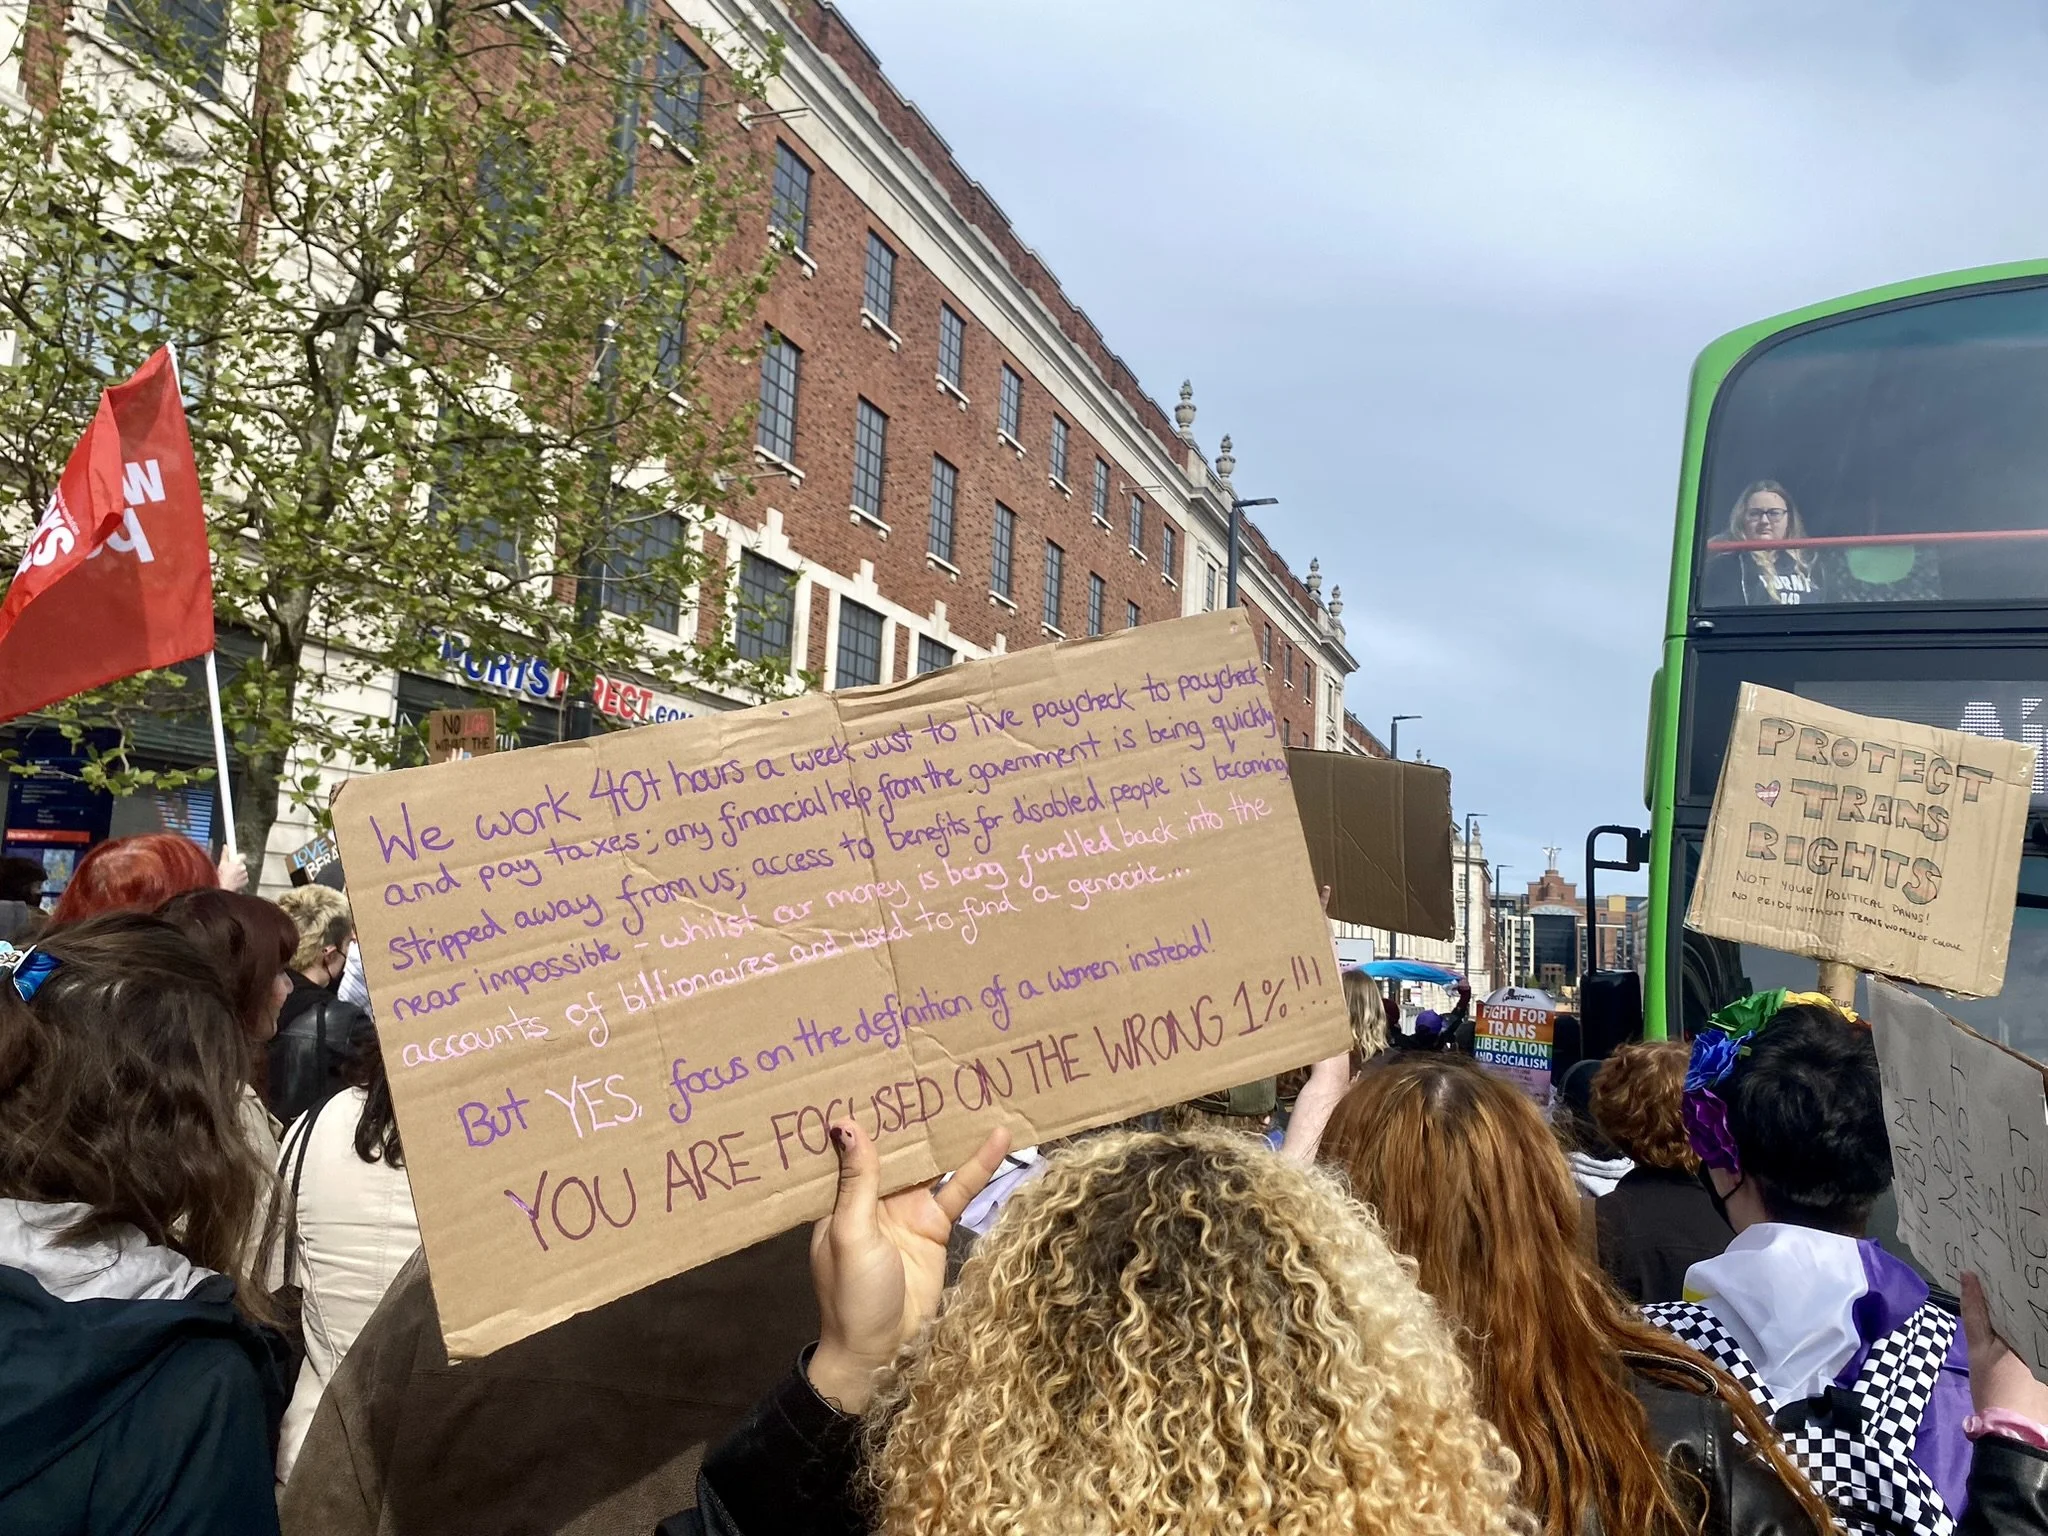 We work 40+ hours a week just to live paycheck to paycheck
and pay taxes; any financial help from the government is being quickly
stripped away from us; access to benefits for disabled people is becoming
near impossible - whilst our money is being funelled back into the
accounts of billionaires and used to fund a genocide...
But YES, focus on the definition of a women instead!
YOU ARE FOCUSED ON THE WRONG 1%!!!
PROTECT
TRANS
RIGHTS
NOT YOUR POLITICAL PAWNS!
NO PRIDE WITHOUT TRANS WOMEN OF COLOUR
SPORTS DIRECT.COM
NO
WITHOUT THE
LOVE
FIGHT FOR
TRANS
LIBERATION
AND SOCIALISM
IS NOT
FEMINIST
IS
FASCIST